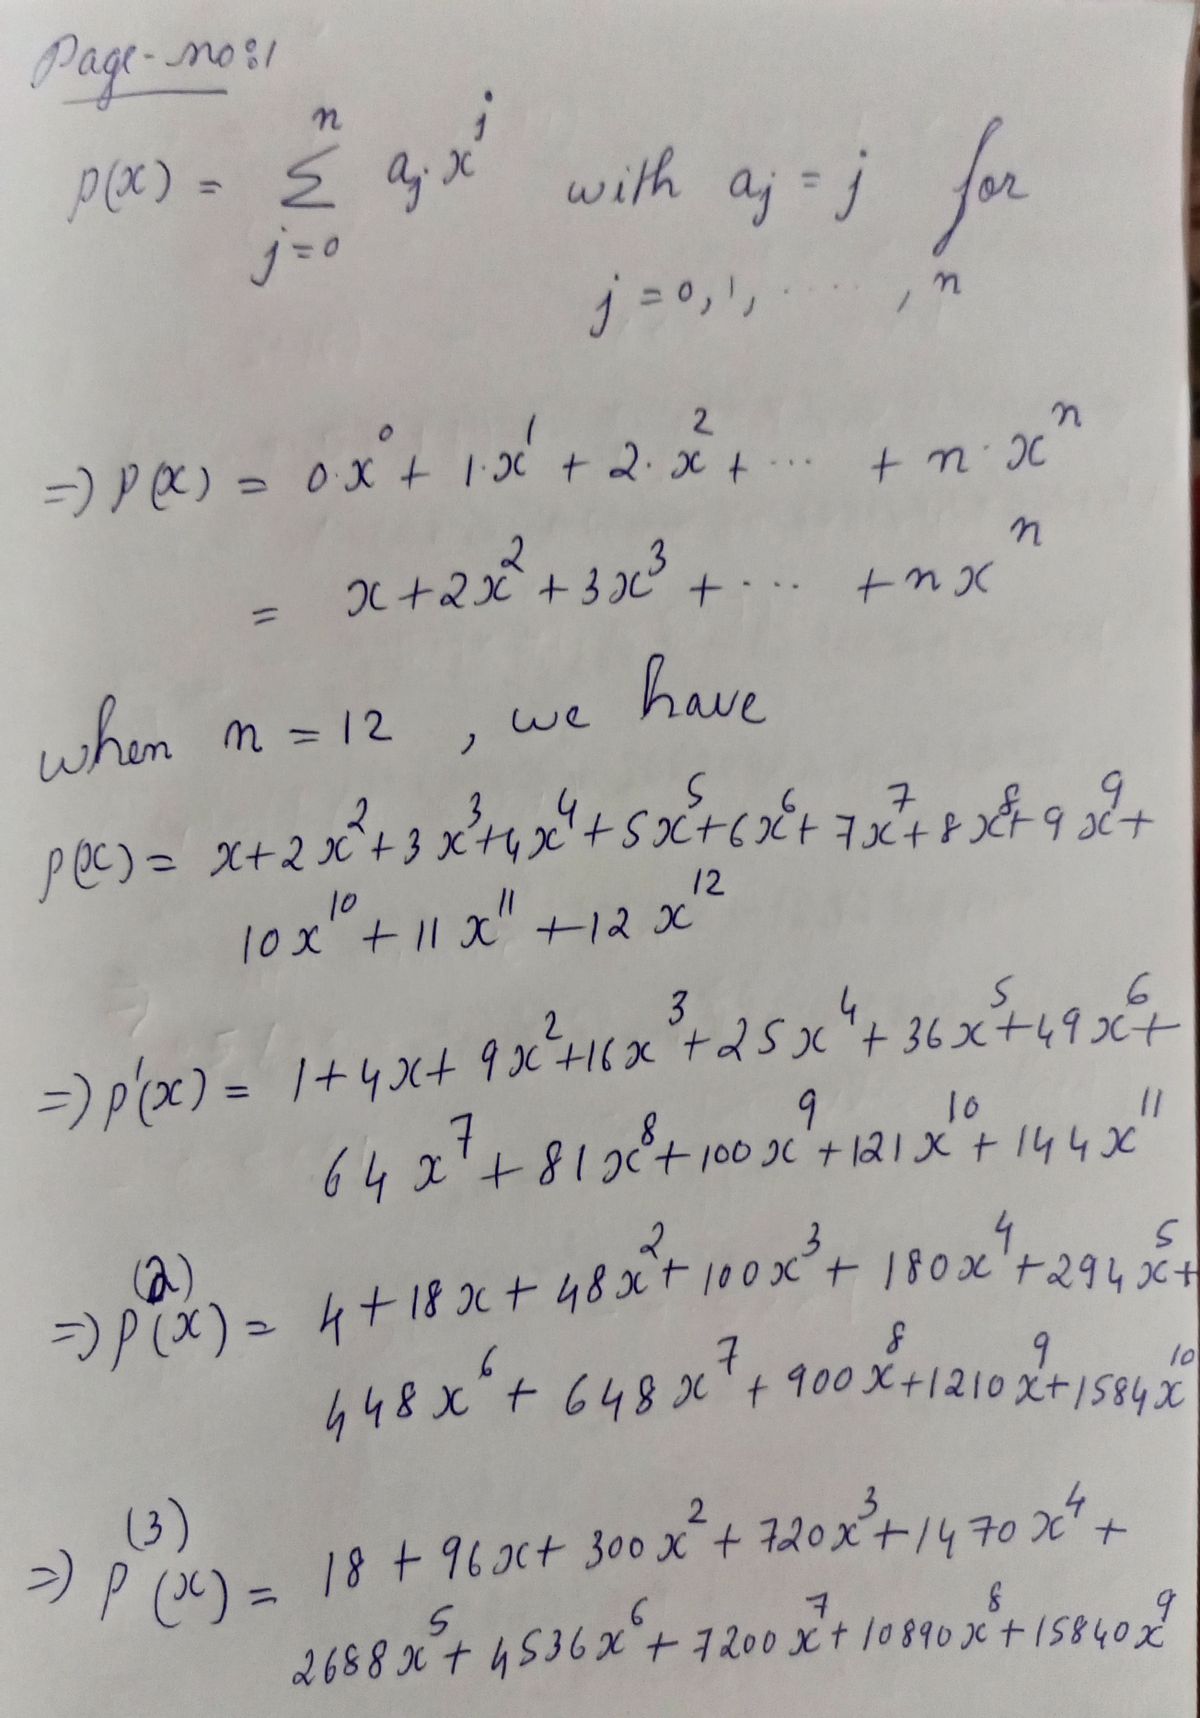 Page-no:1
p(x) = Σ_{j=0}^{n} a_j · x^j with a_j = j for
j = 0, 1, ....., n
=> p(x) = 0·x^0 + 1·x^1 + 2·x^2 + ... + n·x^n
= x + 2x^2 + 3x^3 + ... + nx^n
when n = 12 , we have
p(x) = x + 2x^2 + 3x^3 + 4x^4 + 5x^5 + 6x^6 + 7x^7 + 8x^8 + 9x^9 +
10x^10 + 11x^11 + 12x^12
=> p'(x) = 1 + 4x + 9x^2 + 16x^3 + 25x^4 + 36x^5 + 49x^6 +
64x^7 + 81x^8 + 100x^9 + 121x^10 + 144x^11
=> p^(2)(x) = 4 + 18x + 48x^2 + 100x^3 + 180x^4 + 294x^5 +
448x^6 + 648x^7 + 900x^8 + 1210x^9 + 1584x^10
=> p^(3)(x) = 18 + 96x + 300x^2 + 720x^3 + 1470x^4 +
2688x^5 + 4536x^6 + 7200x^7 + 10890x^8 + 15840x^9